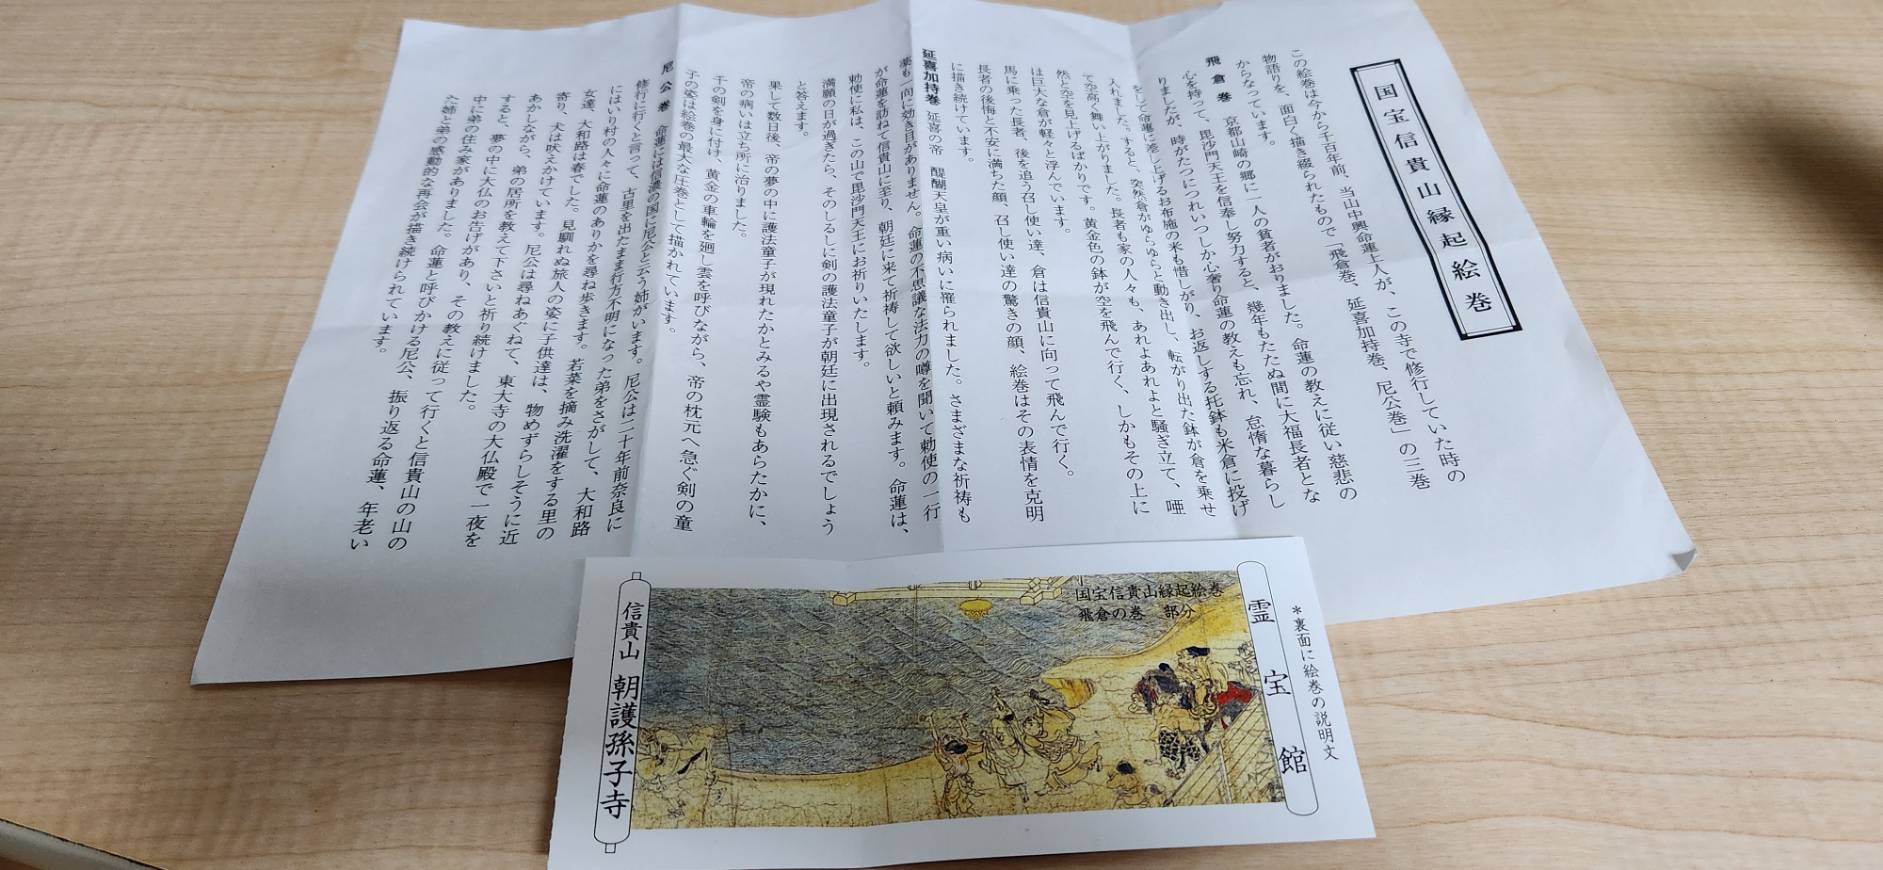 国宝信貴山縁起絵巻
この絵巻は今から千百年前、当山中興命蓮上人が、この寺で修行していた時の
物語りを、面白く描き綴られたもので「飛倉巻、延喜加持巻、尼公巻」の三巻
からなっています。
飛倉巻 京都山崎の郷に一人の貧者がおりました。命蓮の教えに従い慈悲の
心を持って、毘沙門天王を信奉し努力すると、幾年もたたぬ間に大福長者とな
りましたが、時がたつにつれいつしか心奢り命蓮の教えも忘れ、怠惰な暮らし
をして命蓮に差し上げるお布施の米も惜しがり、お返しする托鉢も米倉に投げ
入れました。すると、突然倉がゆらゆらと動き出し、転がり出た鉢が倉を乗せ
て空高く舞い上がりました。長者も家の人々も、あれよあれよと騒ぎ立て、唖
然と空を見上げるばかりです。黄金色の鉢が空を飛んで行く、しかもその上に
は巨大な倉が軽々と浮んでいます。
馬に乗った長者、後を追う召し使い達、倉は信貴山に向って飛んで行く。
長者の後悔と不安に満ちた顔、召し使い達の驚きの顔、絵巻はその表情を克明
に描き続けています。
延喜加持巻 延喜の帝 醍醐天皇が重い病いに罹られました。さまざまな祈祷も
薬も一向に効き目がありません。命蓮の不思議な法力の噂を聞いて勅使の一行
が命蓮を訪ねて信貴山に至り、朝廷に来て祈祷して欲しいと頼みます。命蓮は、
勅使に私は、この山で毘沙門天王にお祈りいたします。
満願の日が過ぎたら、そのしるしに剣の護法童子が朝廷に出現されるでしょう
と答えます。
果して数日後、帝の夢の中に護法童子が現れたかとみるや霊験もあらたかに、
帝の病いは立ち所に治りました。
千の剣を身に付け、黄金の車輪を廻し雲を呼びながら、帝の枕元へ急ぐ剣の童
子の姿は絵巻の最大な圧巻として描かれています。
尼公巻 命蓮には信濃の国に尼公と云う姉がいます。尼公は二十年前奈良に
修行に行くと言って、古里を出たまま行方不明になった弟をさがして、大和路
にはいり村の人々に命蓮のありかを尋ね歩きます。若菜を摘み洗濯をする里の
女達、大和路は春でした。見馴れぬ旅人の姿に子供達は、物めずらしそうに近
寄り、犬は吠えかけています。尼公は尋ねあぐねて、東大寺の大仏殿で一夜を
あかしながら、弟の居所を教えて下さいと祈り続けました。
すると、夢の中に大仏のお告げがあり、その教えに従って行くと信貴山の山の
中に弟の住み家がありました。命蓮と呼びかける尼公、振り返る命蓮、年老い
た姉と弟の感動的な再会が描き続けられています。
＊裏面に絵巻の説明文
霊宝館
国宝信貴山縁起絵巻
飛倉の巻 部分
信貴山 朝護孫子寺